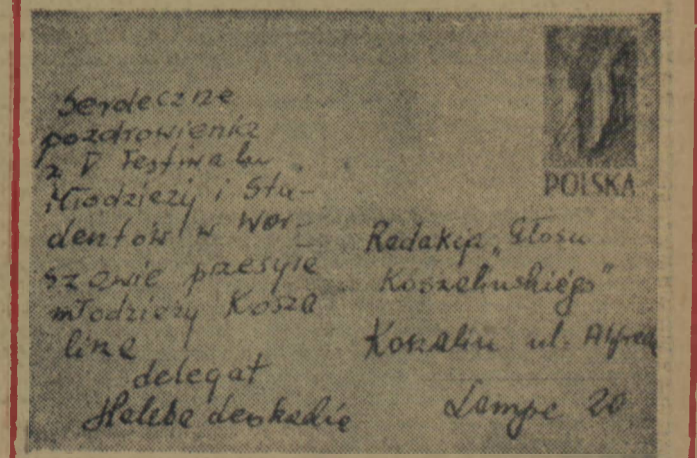 Serdeczne
pozdrowienia
z V Festiwalu
Młodzieży i Stu-
dentów w War-
szawie przesyła
młodzieży Kosza
lina
delegat
POLSKA
Redakcja „Głosu
Koszalińskiego"
Koszalin ul. Alfreda
Lampe 20